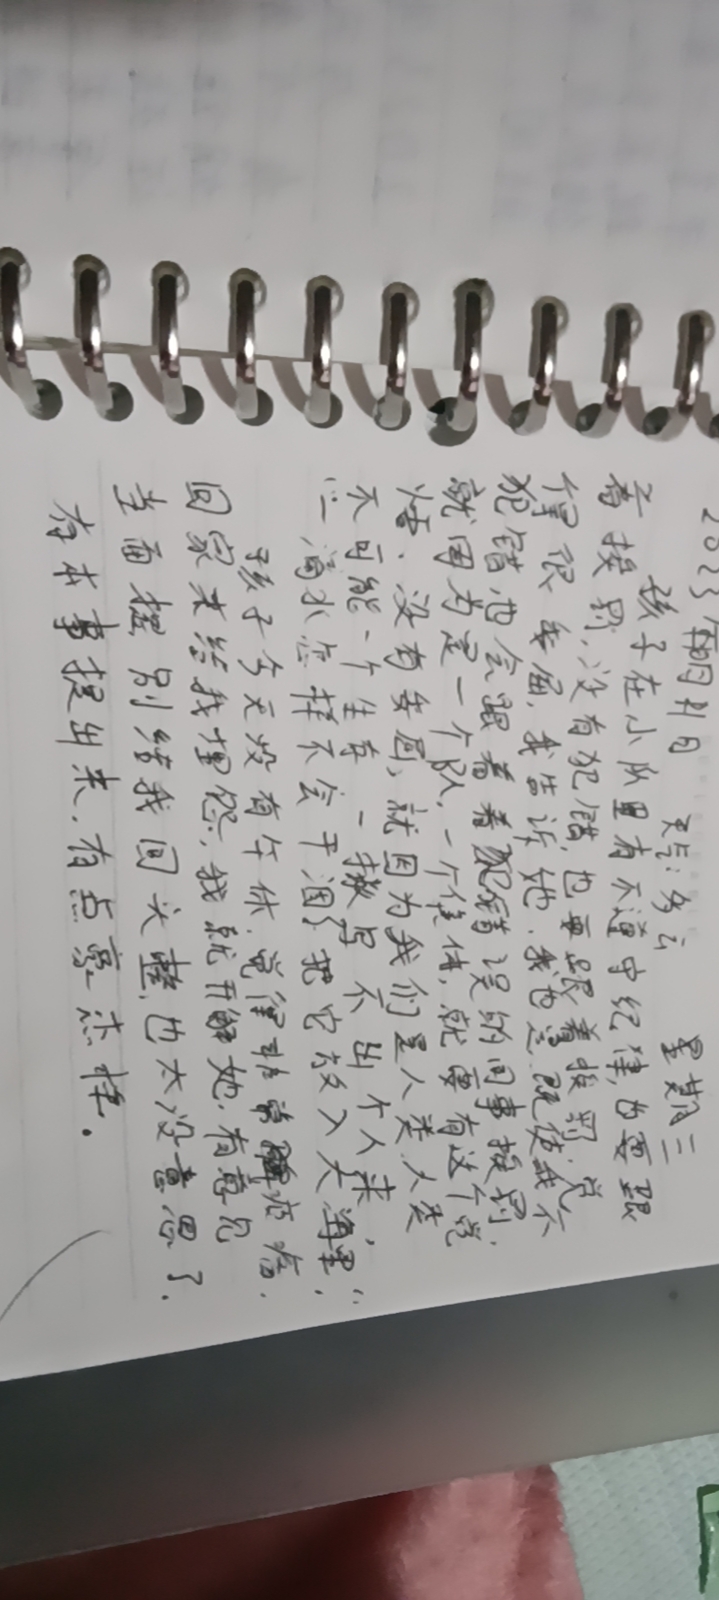 2023年 月 日 天气:多云 星期三
孩子在小队里有不遵守纪律,也要跟
着挨罚,没有犯错,也要跟着挨罚,觉
得很委屈,我告诉她,我也是,既使我不
犯错,也会跟着着犯错误的同事挨罚,
就因为是一个队,一个集体,就要有这个觉
悟,没有委屈,就因为我们是人类,人类
不可能一个生存,一 不出个人来,
“一滴水怎样不会干涸?把它放入大海里。”
孩子今天没有午休,觉得非常
回家来给我埋怨,我就开解她,有意见
当面提,别给我回头整,也太没意思了。
有本事提出来,有点意 样。